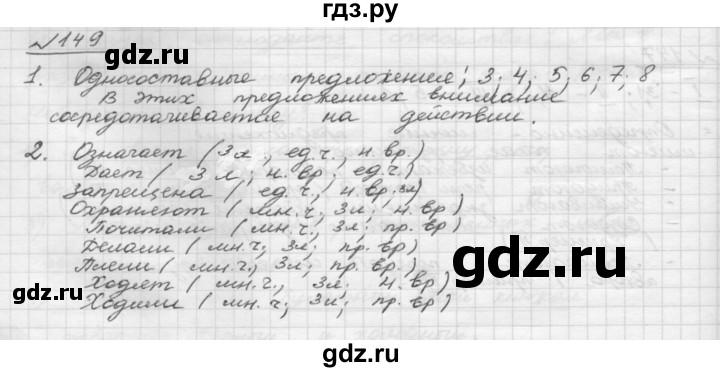 гдз.ру
№149
1. Односоставные предложения: 3; 4; 5; 6; 7; 8
В этих предложениях внимание
сосредотачивается на действии.
2. Означает (3л., ед.ч., н.вр.)
Дает (3л; н.вр; ед.ч.)
Запрещена (ед.ч., н.вр, 3л)
Охраняют (мн.ч; 3л; н.вр)
Почитали (мн.ч., 3л; пр.вр.)
Делали (мн.ч; 3л; пр.вр)
Плели (мн.ч., 3л; пр.вр.)
Ходят (мн.ч., 3л; н.вр)
Ходили (мн.ч; 3л; пр.вр)
gdz.ru
gdz.ru
gdz.ru
gdz.ru
gdz.ru
gdz.ru
gdz.ru
gdz.ru